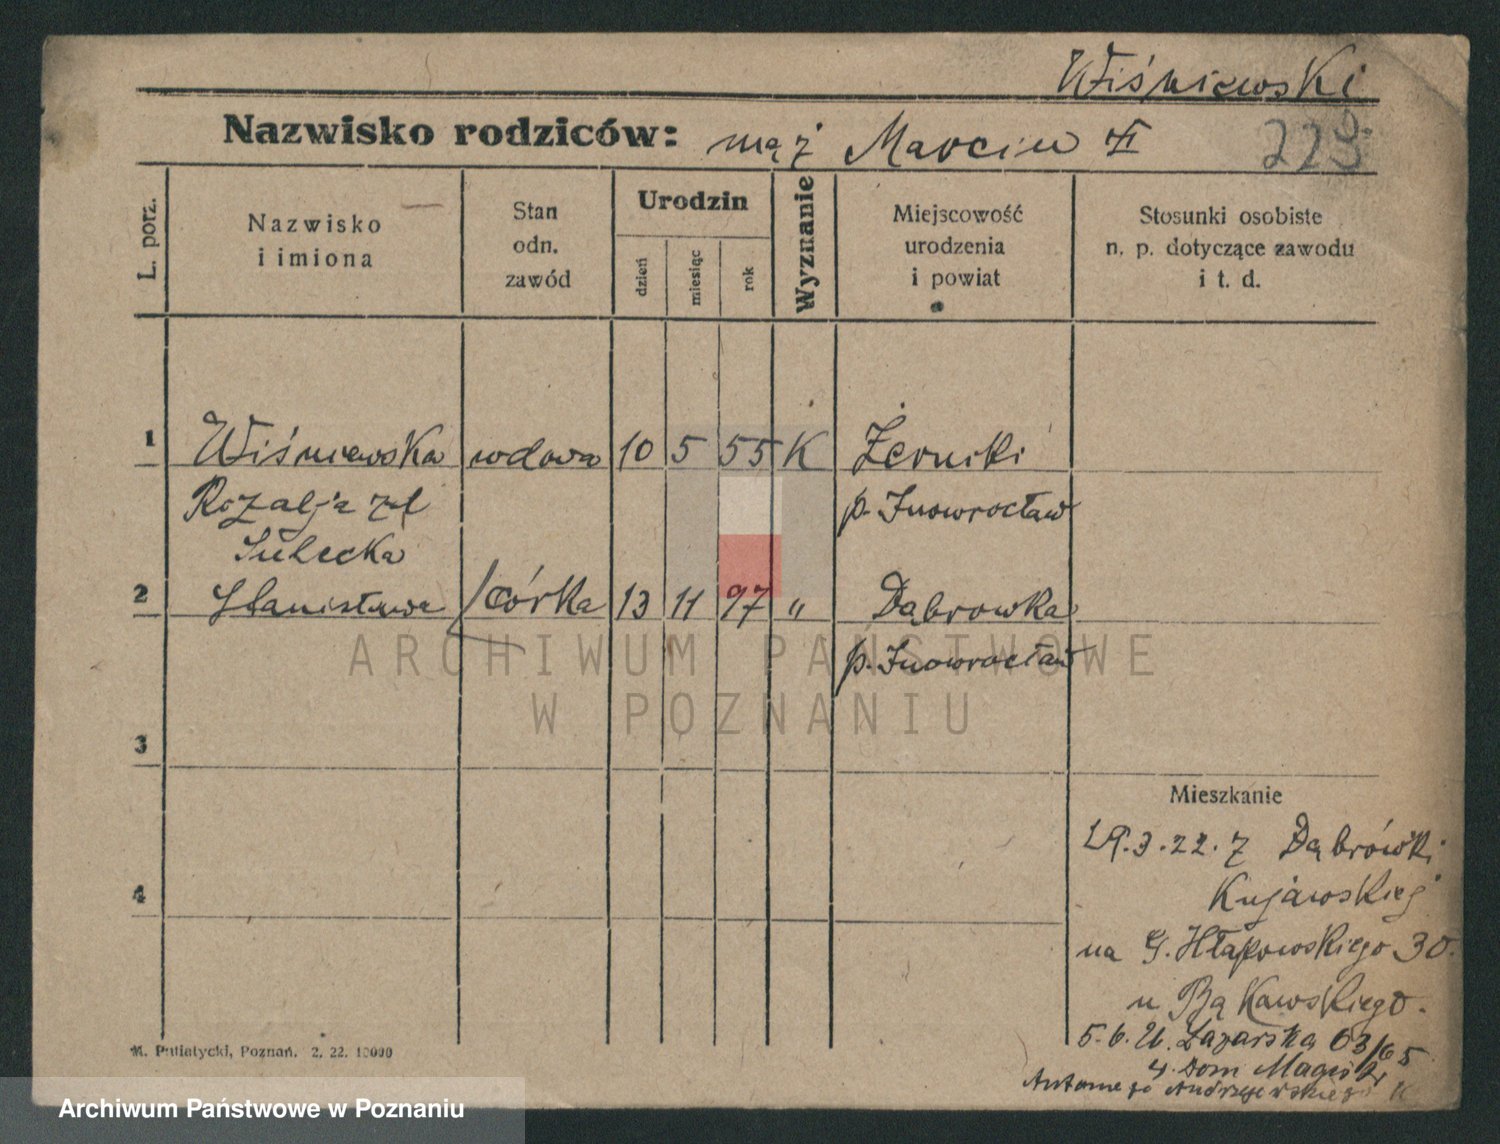 Wiśniewski
Nazwisko rodziców: mąż Marcin
229
L. porz.
Nazwisko i imiona
Stan odn. zawód
Urodzin
dzień
miesiąc
rok
Wyznanie
Miejscowość urodzenia i powiat
Stosunki osobiste n. p. dotyczące zawodu i t. d.
1 Wiśniewska wdowa 10 5 55 K Żerniki
Rozalja p. Inowrocław
Sulecka
2 Stanisława córka 13 11 97 " Dąbrowka
p. Inowrocław
ARCHIWUM PAŃSTWOWE
W POZNANIU
3
4
Mieszkanie
29.3.22. z Dąbrówki
Kujawskiej
na G. Hłapowskiego 30.
u Bąkowskiego.
5.6. Łazarska 63/65
Dom
M. Putiatycki, Poznań. 2. 22. 10000
Archiwum Państwowe w Poznaniu